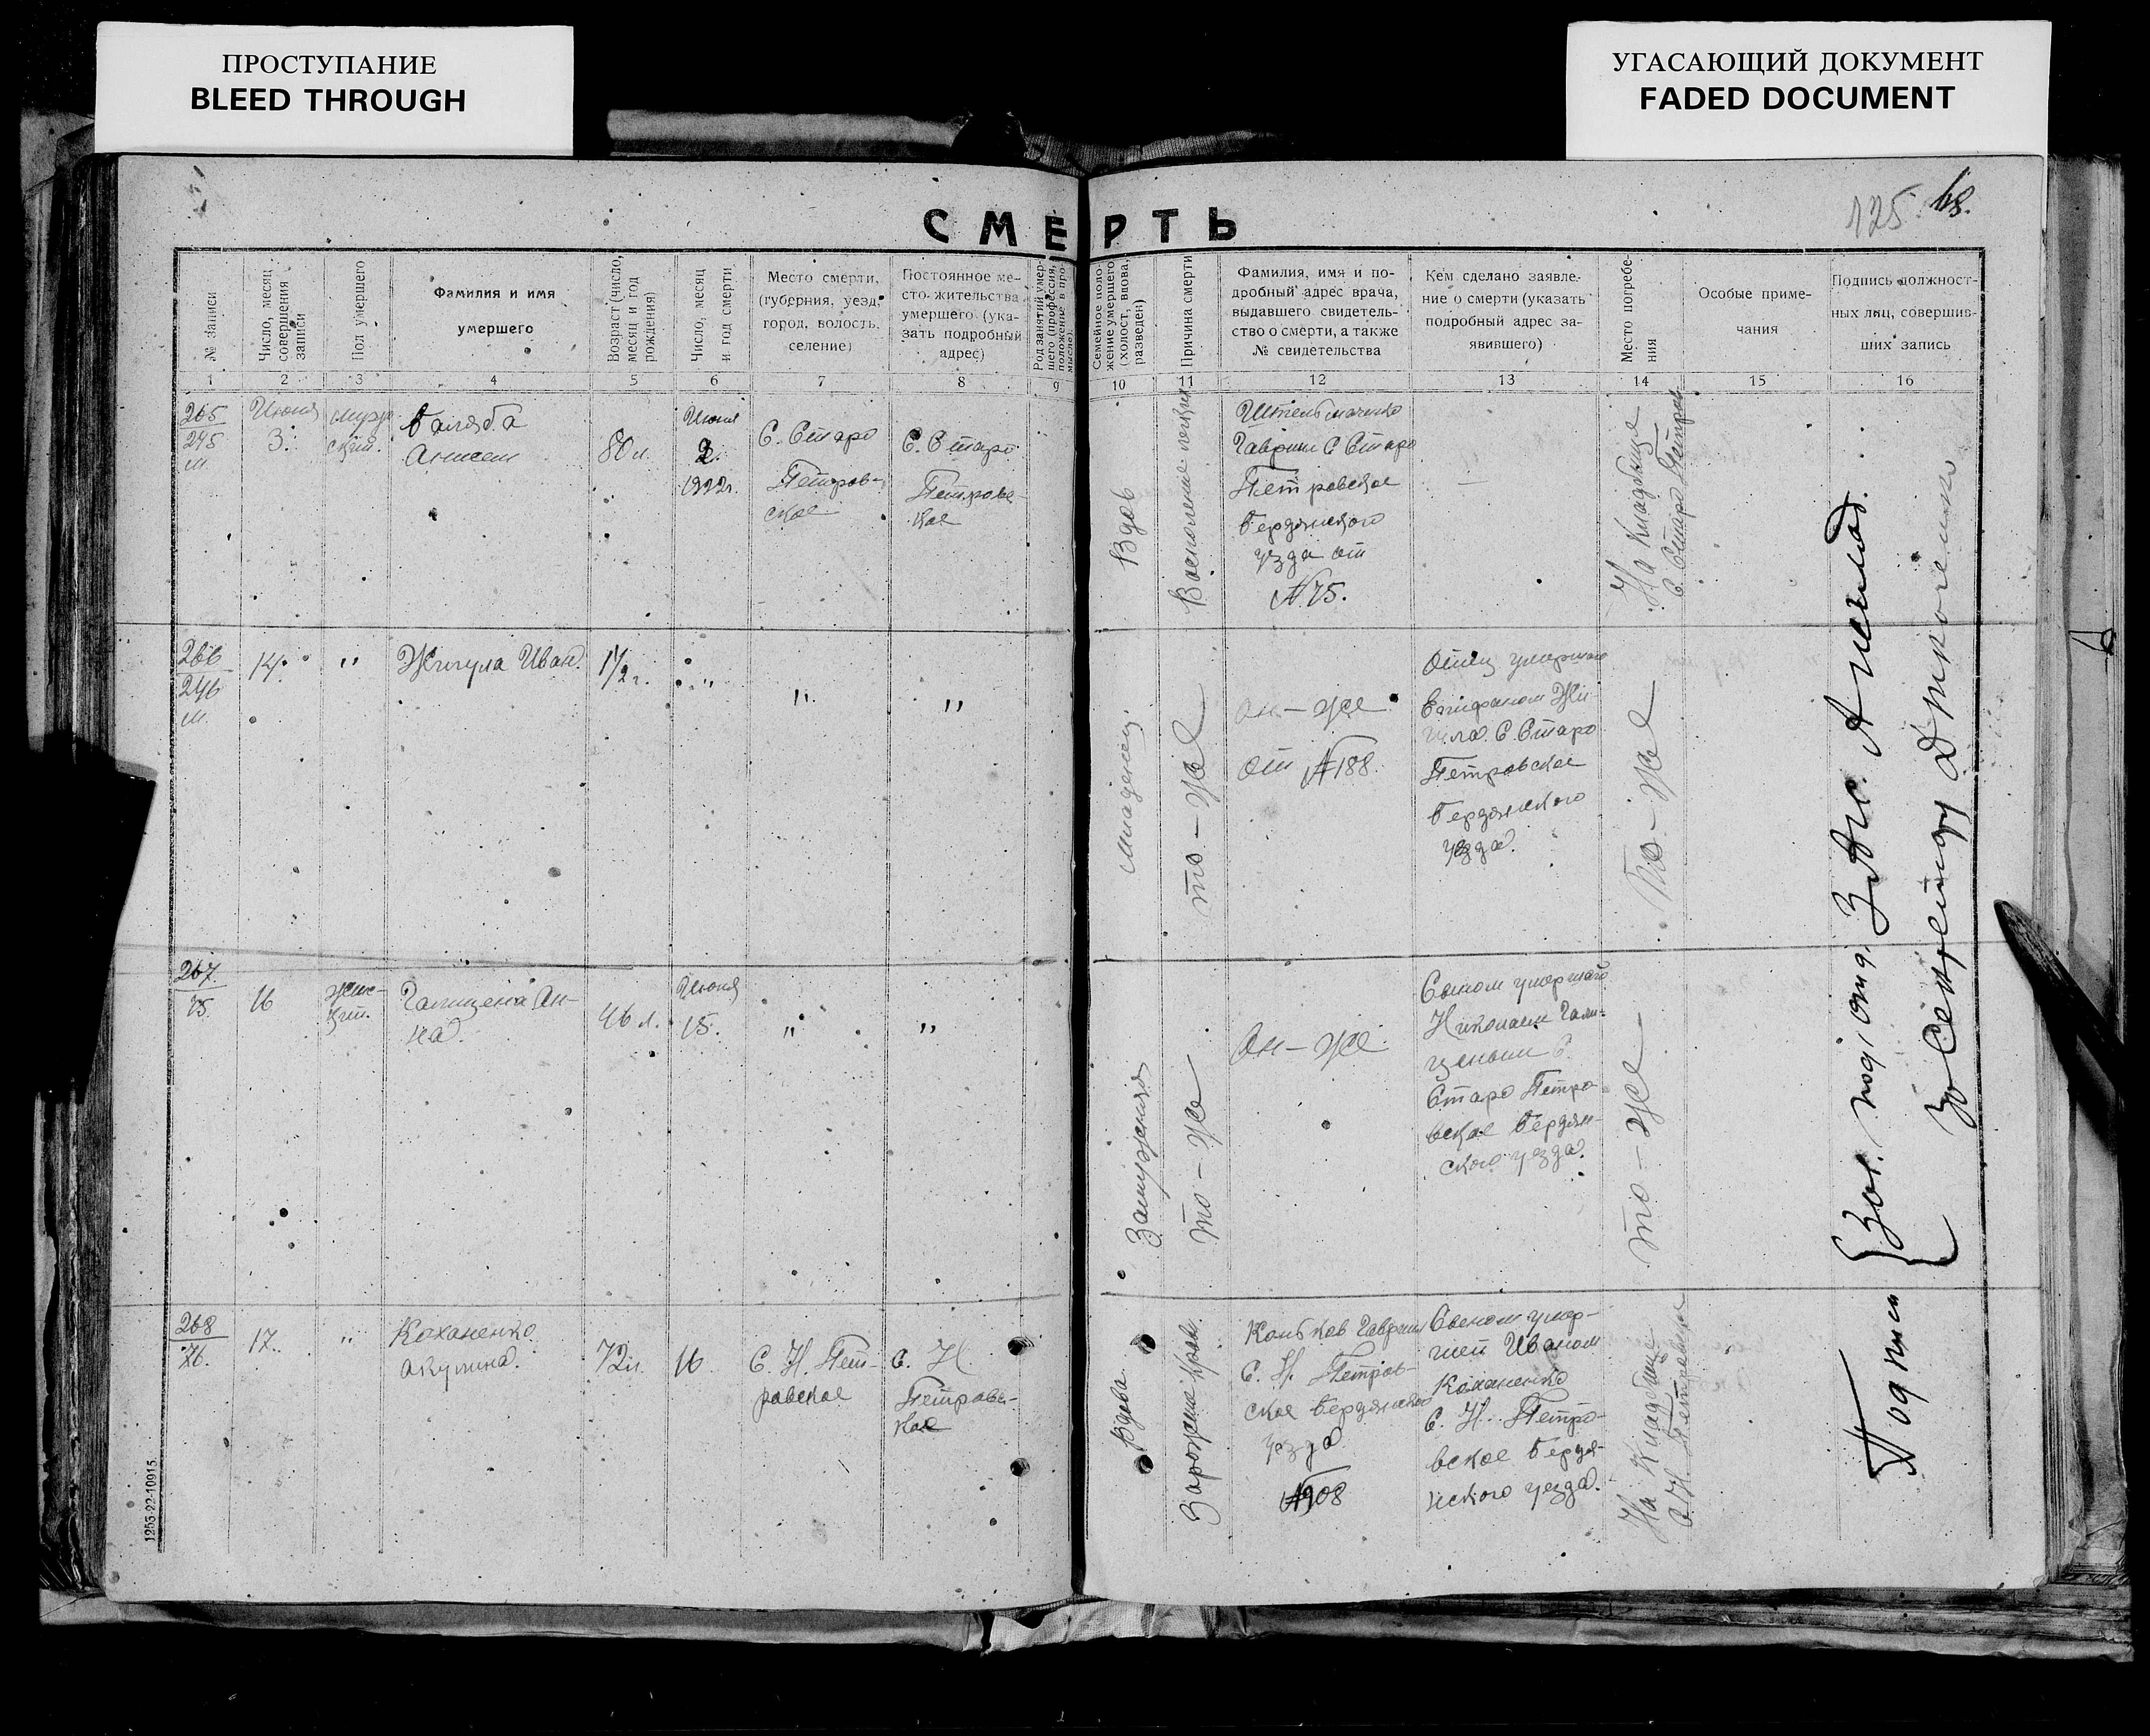 ПРОСТУПАНИЕ
BLEED THROUGH
УГАСАЮЩИЙ ДОКУМЕНТ
FADED DOCUMENT
125 68.
СМЕРТЬ
№ записи
Число, месяц совершения записи
Пол умершего
Фамилия и имя
умершего
Возраст (число, месяц и год рождения)
Число, месяц и год смерти
Место смерти,
(губерния, уезд,
город, волость,
селение)
Постоянное ме-
сто жительства
умершего (ука-
зать подробный
адрес)
Род занятий умер-
шего (профессия,
положение в про-
мысле)
Семейное поло-
жение умершего
(холост, вдова,
разведен)
Причина смерти
Фамилия, имя и по-
дробный адрес врача,
выдавшего свидетель-
ство о смерти, а также
№ свидетельства
Кем сделано заявле-
ние о смерти (указать
подробный адрес за-
явившего)
Место погребе-
ния
Особые приме-
чания
Подпись должност-
ных лиц, совершив-
ших запись
1 2 3 4 5 6 7 8 9 10 11 12 13 14 15 16
265
245
м.
Июня
3.
муж
ской.
80 л.
Июня
2.
1922 г.
С. Старо
Петров-
ское
С. Старо
Петровс-
кое
Вдов
Воспаление
Гаврил С Старо
Петровское
Бердянского
уезда от
№ 75.
—
На Кладбище
С. Старо Петров
266
246
м.
14.
"
Жигула Иван.
1 1/2 г.
"
"
"
Младенец.
то-же
он-же
от № 188.
Отец умершего
С. Старо
Петровское
Бердянского
уезда.
То-же
267.
75.
16
жен-
ской.
Галицена Ан-
на.
46 л.
Июня
15.
"
"
Замужняя
то-же
Он-же
Сыном умершаго
Николаем Гали-
ценым С.
Старо Петро-
вское Бердян-
ского уезда.
то-же
268
76.
17.
"
Коханенко
Акулина.
72 л.
16
С. Н. Пет-
ровское
С. Н.
Петровс-
кое
Вдова
Заражение крови.
Гаврил
С. Н. Петров-
ское Бердянского
уезда
№ 908
Сыном умер-
шей Иваном
Коханенко
С. Н. Петро-
вское Бердя-
нского уезда.
На Кладбище
С. Н. Петровском
Подписи
Зав. подотд. ЗАГС.
За Секретаря
1253-22-10915.